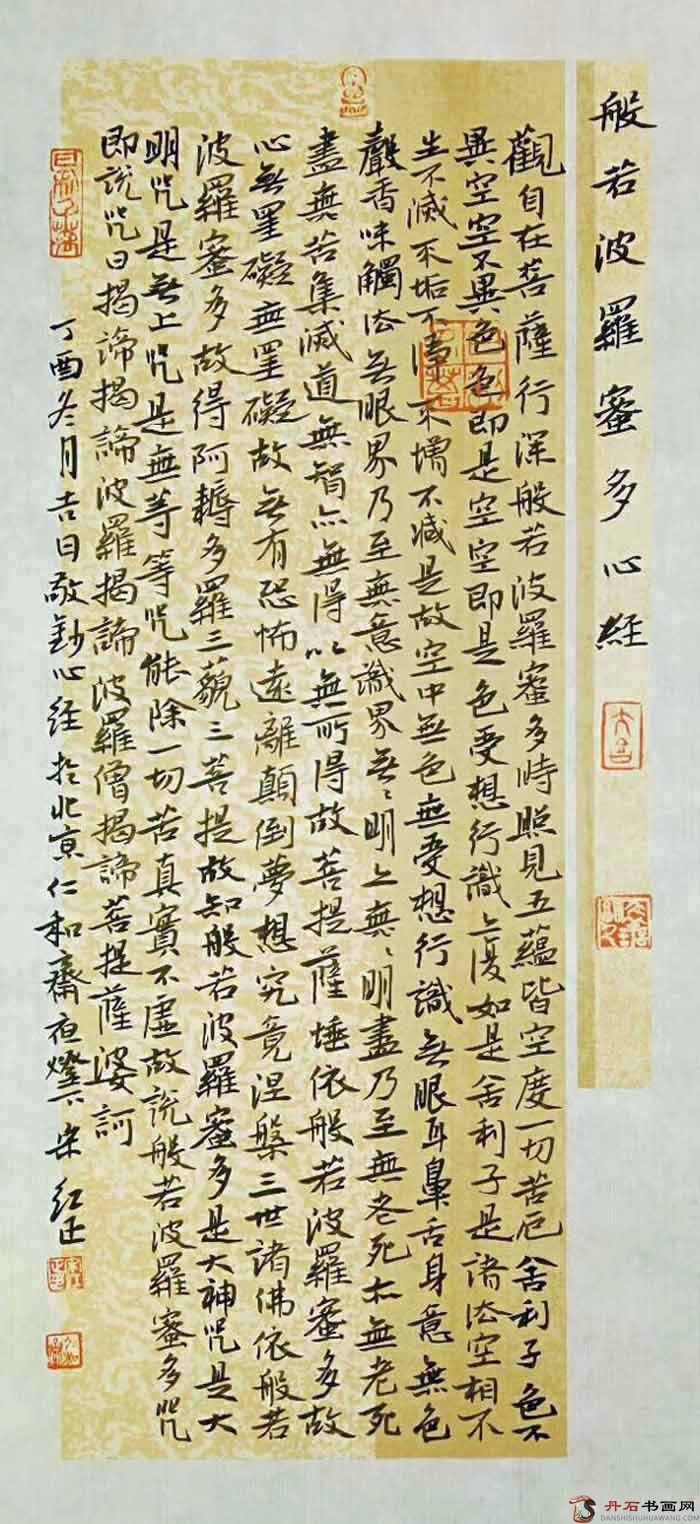 般若波羅蜜多心經
觀自在菩薩行深般若波羅蜜多時照見五蘊皆空度一切苦厄舍利子色不
異空空不異色色即是空空即是色受想行識亦復如是舍利子是諸法空相不
生不滅不垢不淨不增不減是故空中無色無受想行識無眼耳鼻舌身意無色
聲香味觸法無眼界乃至無意識界無〻明亦無〻明盡乃至無老死亦無老死
盡無苦集滅道無智亦無得以無所得故菩提薩埵依般若波羅蜜多故
心無罣礙無罣礙故無有恐怖遠離顛倒夢想究竟涅槃三世諸佛依般若
波羅蜜多故得阿耨多羅三藐三菩提故知般若波羅蜜多是大神咒是大
明咒是無上咒是無等等咒能除一切苦真實不虛故說般若波羅蜜多咒
即說咒曰揭諦揭諦波羅揭諦波羅僧揭諦菩提薩婆訶
丁酉冬月吉日敬鈔心經於北京仁和齋夜燈下宋紅正
丹石书画网
DANSHISHUHUAWANG.COM